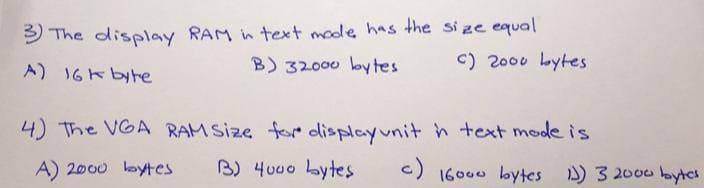 3) The display RAM in text mode has the size equal
A) 16 K byte B) 32000 bytes C) 2000 bytes
4) The VGA RAM Size for display unit in text mode is
A) 2000 bytes B) 4000 bytes c) 16000 bytes D) 32000 bytes